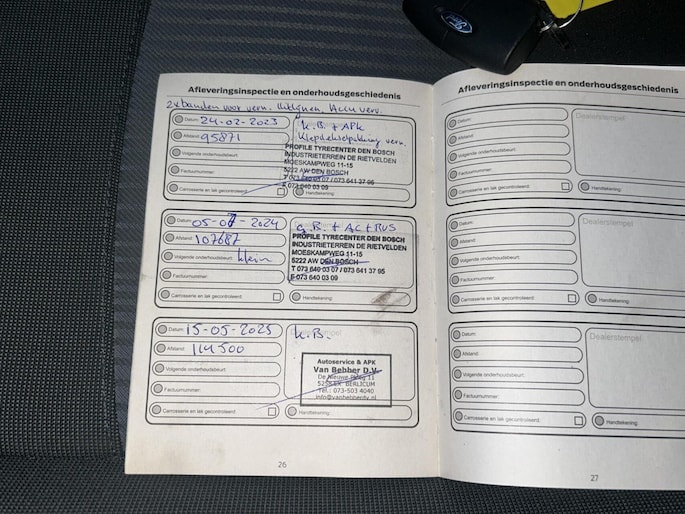 Ford
Afleveringsinspectie en onderhoudsgeschiedenis
2x banden voor vern. Uitlijnen. Accu verv.
Datum: 24-02-2023
Afstand: 95871
Volgende onderhoudsbeurt:
Factuurnummer:
Carrosserie en lak gecontroleerd:
K.B. + APK
Klepdekselpakking vern.
PROFILE TYRECENTER DEN BOSCH
INDUSTRIETERREIN DE RIETVELDEN
MOESKAMPWEG 11-15
5222 AW DEN BOSCH
T 073 640 03 07 / 073 641 37 95
F 073 640 03 09
Handtekening:
Datum: 05-07-2024
Afstand: 107687
Volgende onderhoudsbeurt: klein
Factuurnummer:
Carrosserie en lak gecontroleerd:
g.B. + AC + RUS
PROFILE TYRECENTER DEN BOSCH
INDUSTRIETERREIN DE RIETVELDEN
MOESKAMPWEG 11-15
5222 AW DEN BOSCH
T 073 640 03 07 / 073 641 37 95
F 073 640 03 09
Handtekening:
Datum: 15-05-2025
Afstand: 114500
Volgende onderhoudsbeurt:
Factuurnummer:
Carrosserie en lak gecontroleerd:
Dealerstempel:
K.B.
Autoservice & APK
Van Bebber D.V.
De Nieuwe 11
BERLICUM
Tel.: 073-503 4040
Handtekening:
26
Afleveringsinspectie en onderhoudsgeschiedenis
Datum:
Afstand:
Volgende onderhoudsbeurt:
Factuurnummer:
Carrosserie en lak gecontroleerd:
Dealerstempel:
Handtekening:
Datum:
Afstand:
Volgende onderhoudsbeurt:
Factuurnummer:
Carrosserie en lak gecontroleerd:
Dealerstempel:
Handtekening:
Datum:
Afstand:
Volgende onderhoudsbeurt:
Factuurnummer:
Carrosserie en lak gecontroleerd:
Dealerstempel:
Handtekening:
27